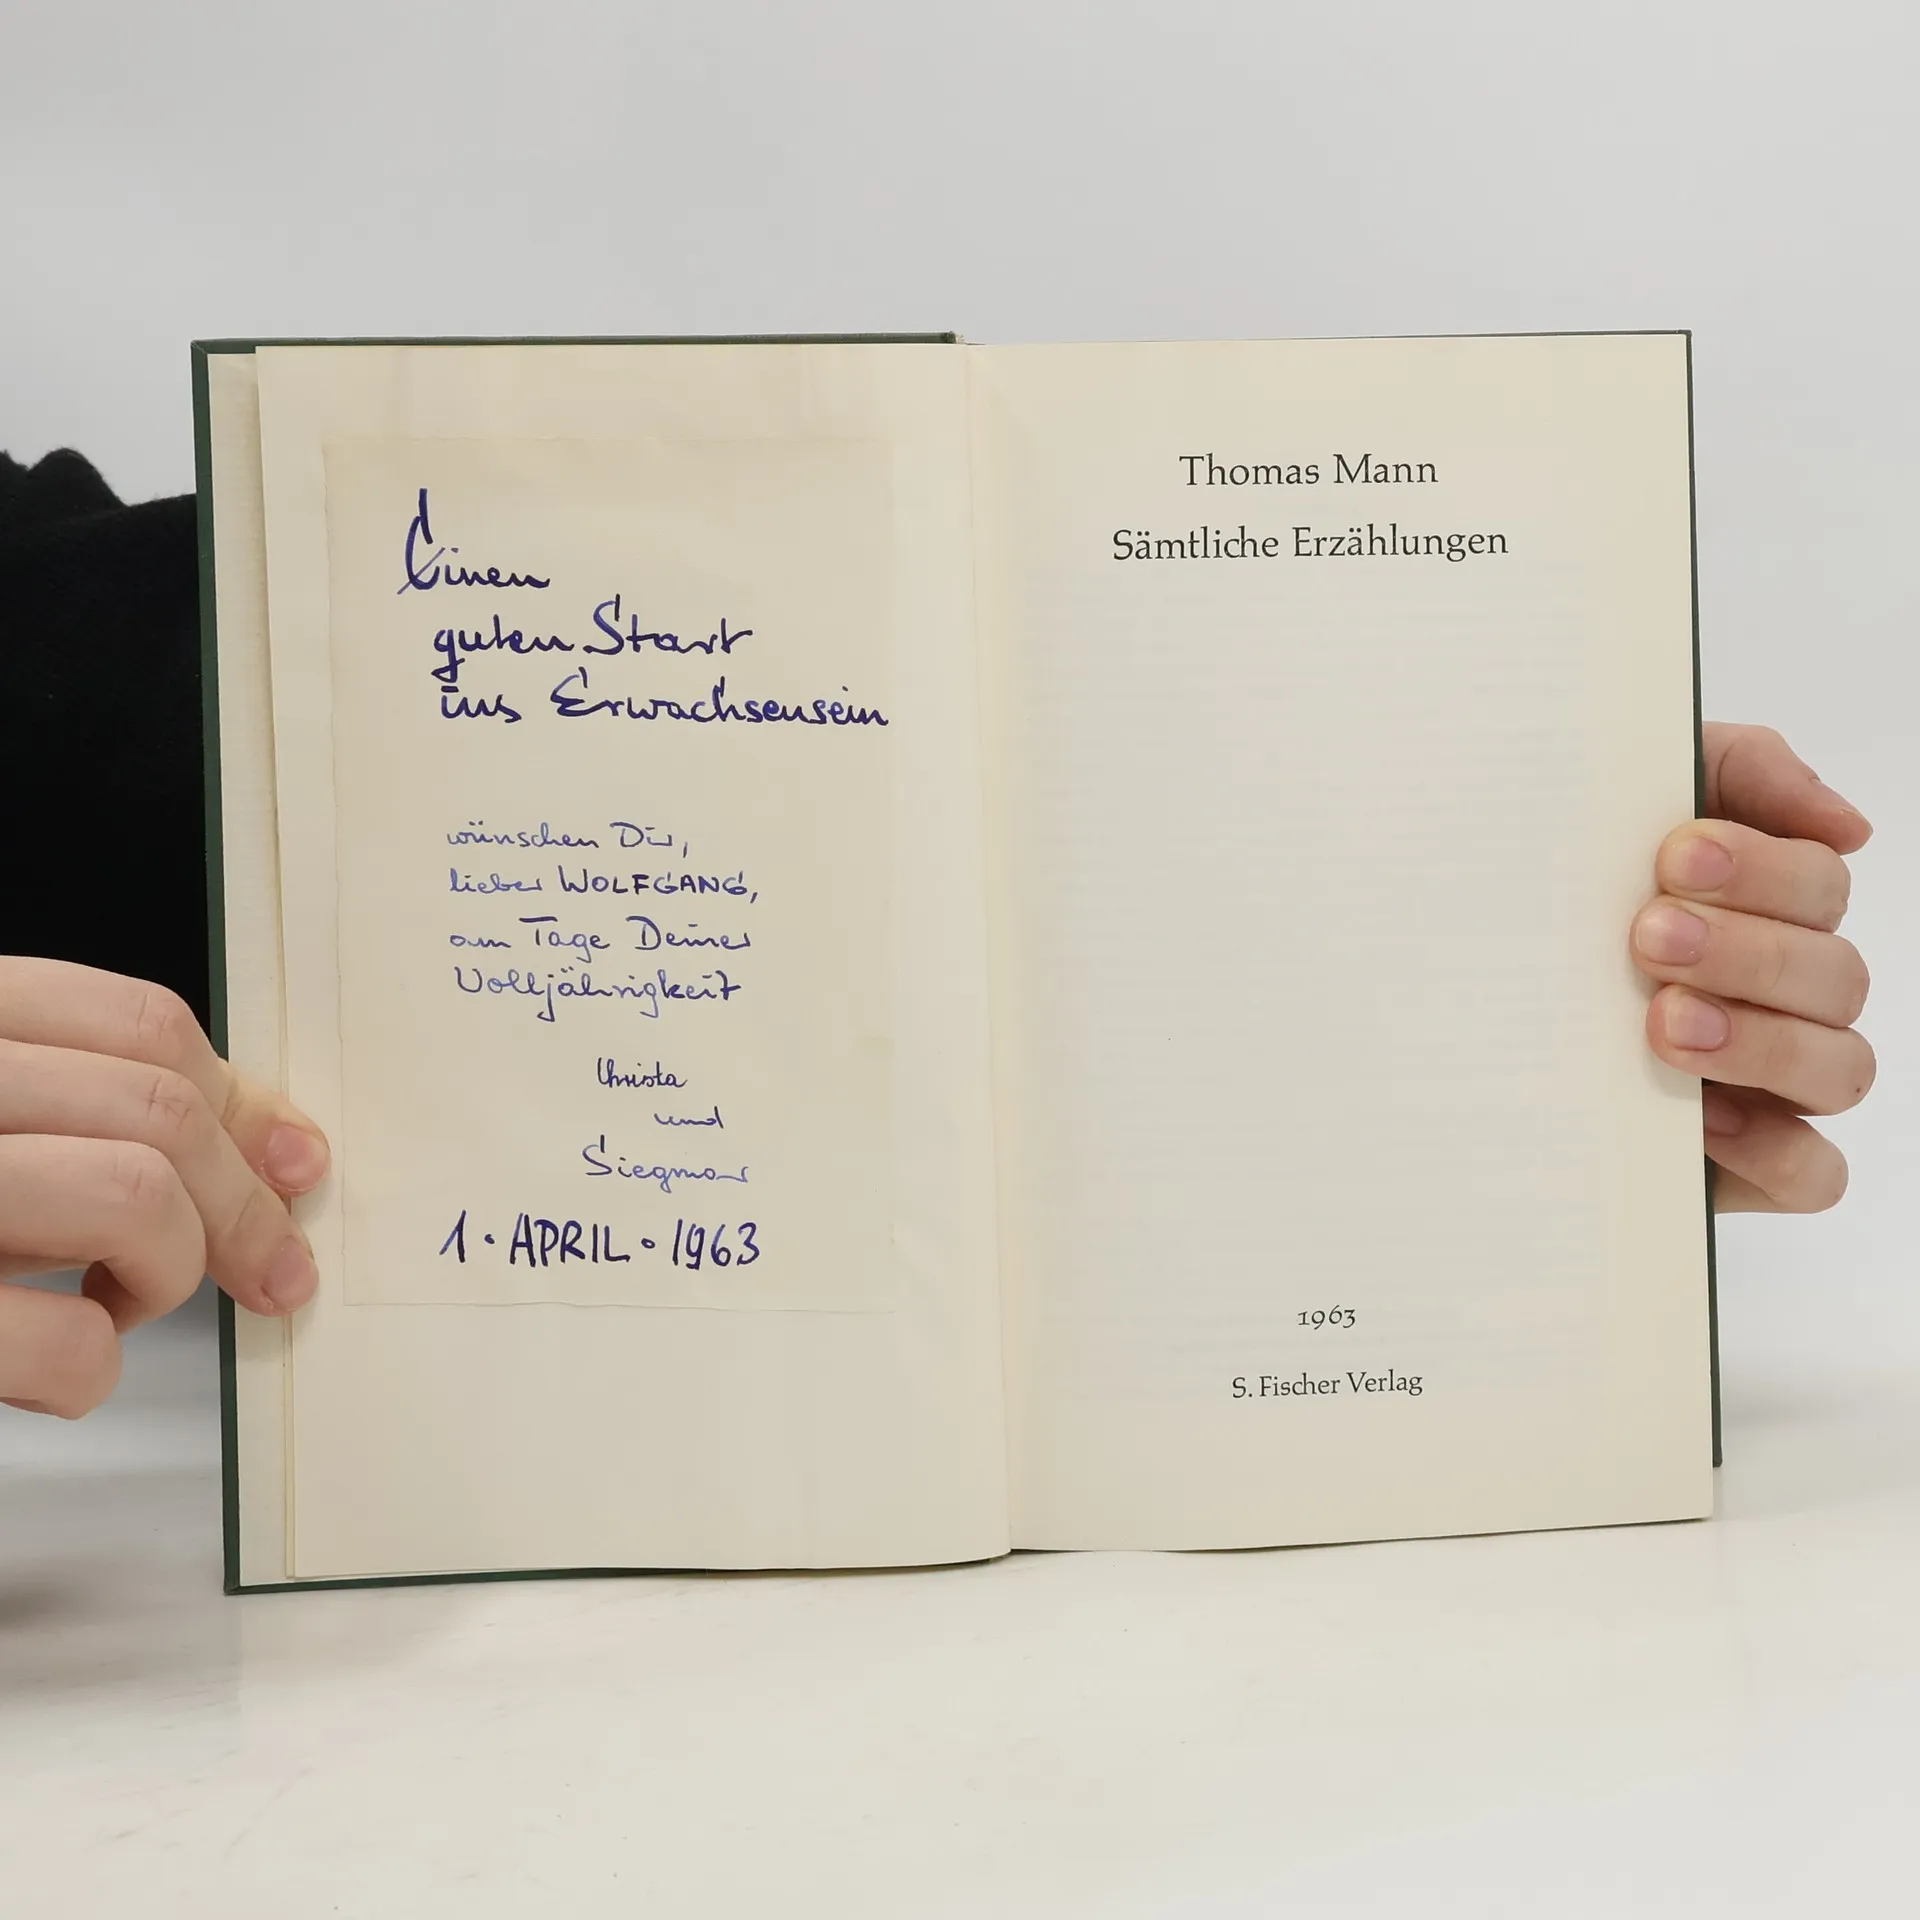 Einen
guten Start
ins Erwachsensein
wünschen Dir,
lieber WOLFGANG,
am Tage Deiner
Volljährigkeit
Christa
und
Siegmar
1. APRIL. 1963
Thomas Mann
Sämtliche Erzählungen
1963
S. Fischer Verlag